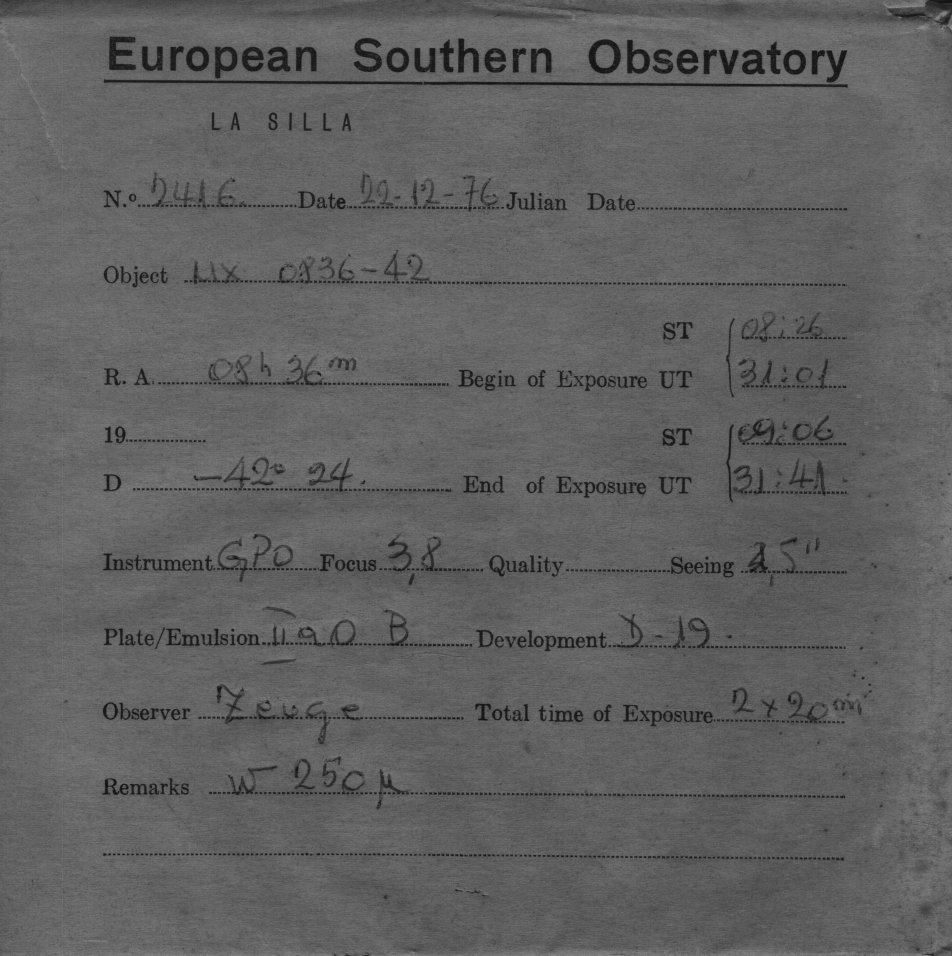 European Southern Observatory
LA SILLA
N.º 2416. Date 22-12-76 Julian Date
Object MX 0836-42
ST 08:26
R. A. 08h 36m Begin of Exposure UT 31:01
19 ST 09:06
D -42° 24. End of Exposure UT 31:41
Instrument GPO Focus 3,8 Quality Seeing ,5"
Plate/Emulsion IIaO B Development D-19.
Observer Zeuge Total time of Exposure 2 x 20 min
Remarks W 250 μ